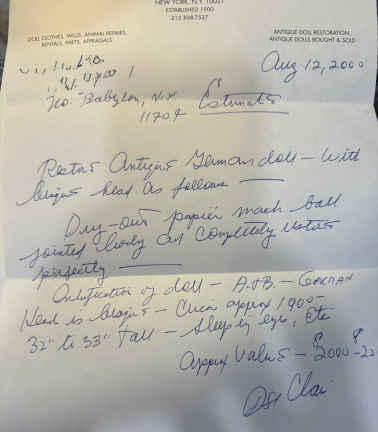 NEW YORK, N.Y. 10021
ESTABLISHED 1900
212 308-7527
DOLL CLOTHES, WIGS, ANIMAL REPAIRS,
RENTALS, PARTS, APPRAISALS
ANTIQUE DOLL RESTORATION,
ANTIQUE DOLLS BOUGHT & SOLD
Aug 12, 2000
No. Babylon, N.Y.
11704
Estimate
Restore Antique German doll - with
bisque head as follows
Dry-out papier mach ball
jointed body and completely restore
perfectly
of doll - A.B. - GERMAN
Head is bisque - Circa approx 1900-
32" to 33" Tall - Sleeping eyes, Etc
approx value - $2000-22